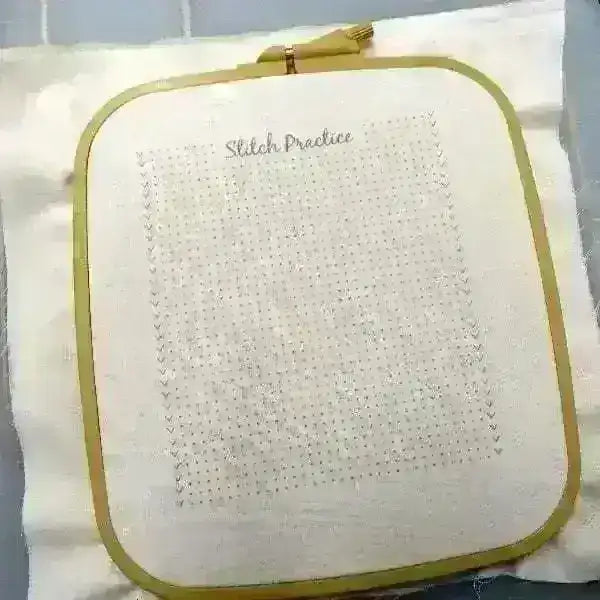 Stitch Practice